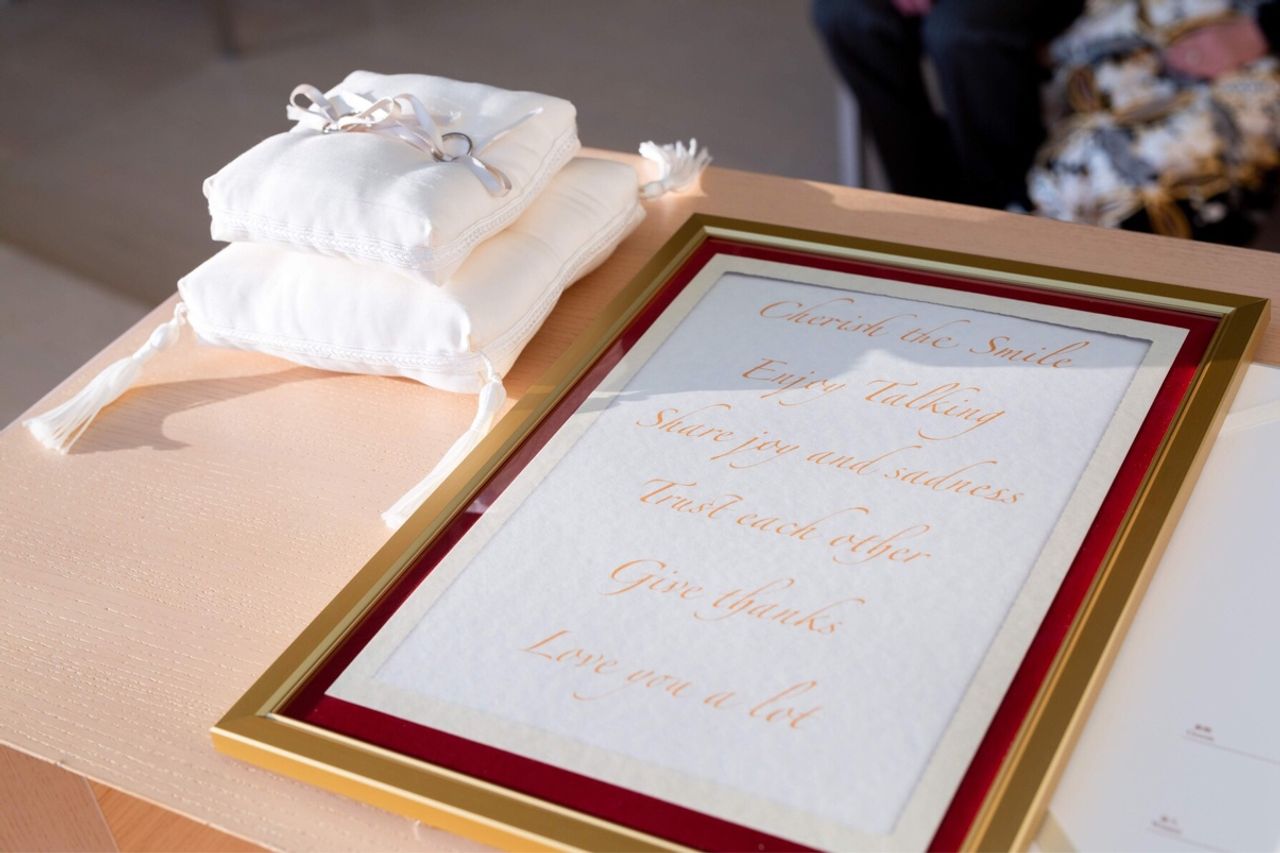 Cherish the Smile
Enjoy Talking
Share joy and sadness
Trust each other
Give thanks
Love you a lot